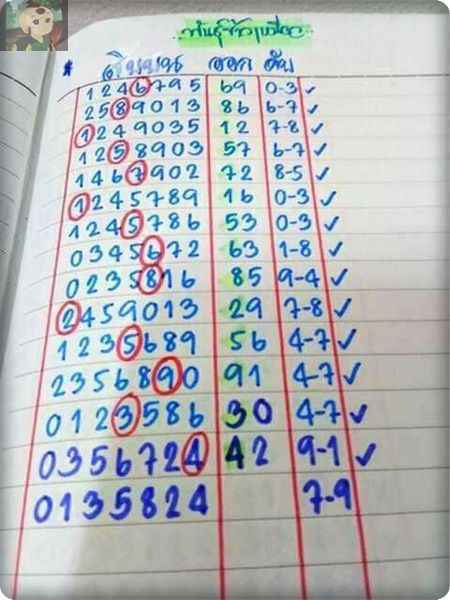 * เดินบน ออก ดับ
1246795 69 0-3 ✓
2589013 86 6-7 ✓
1249035 12 7-8 ✓
1258903 57 6-7 ✓
1467902 72 8-5 ✓
1245789 16 0-3 ✓
1245786 53 0-3 ✓
0345672 63 1-8 ✓
0235816 85 9-4 ✓
2459013 29 7-8 ✓
1235689 56 4-7 ✓
2356890 91 4-7 ✓
0123586 30 4-7 ✓
0356724 42 9-1 ✓
0135824 7-9